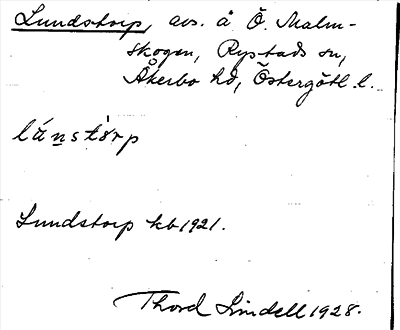 Lundstorp, avs. å Ö. Malm-
skogen, Rystads sn,
Åkerbo hd, Östergötl. l.
lánstòrp
Lundstorp kb 1921.
Thord Lindell 1928.